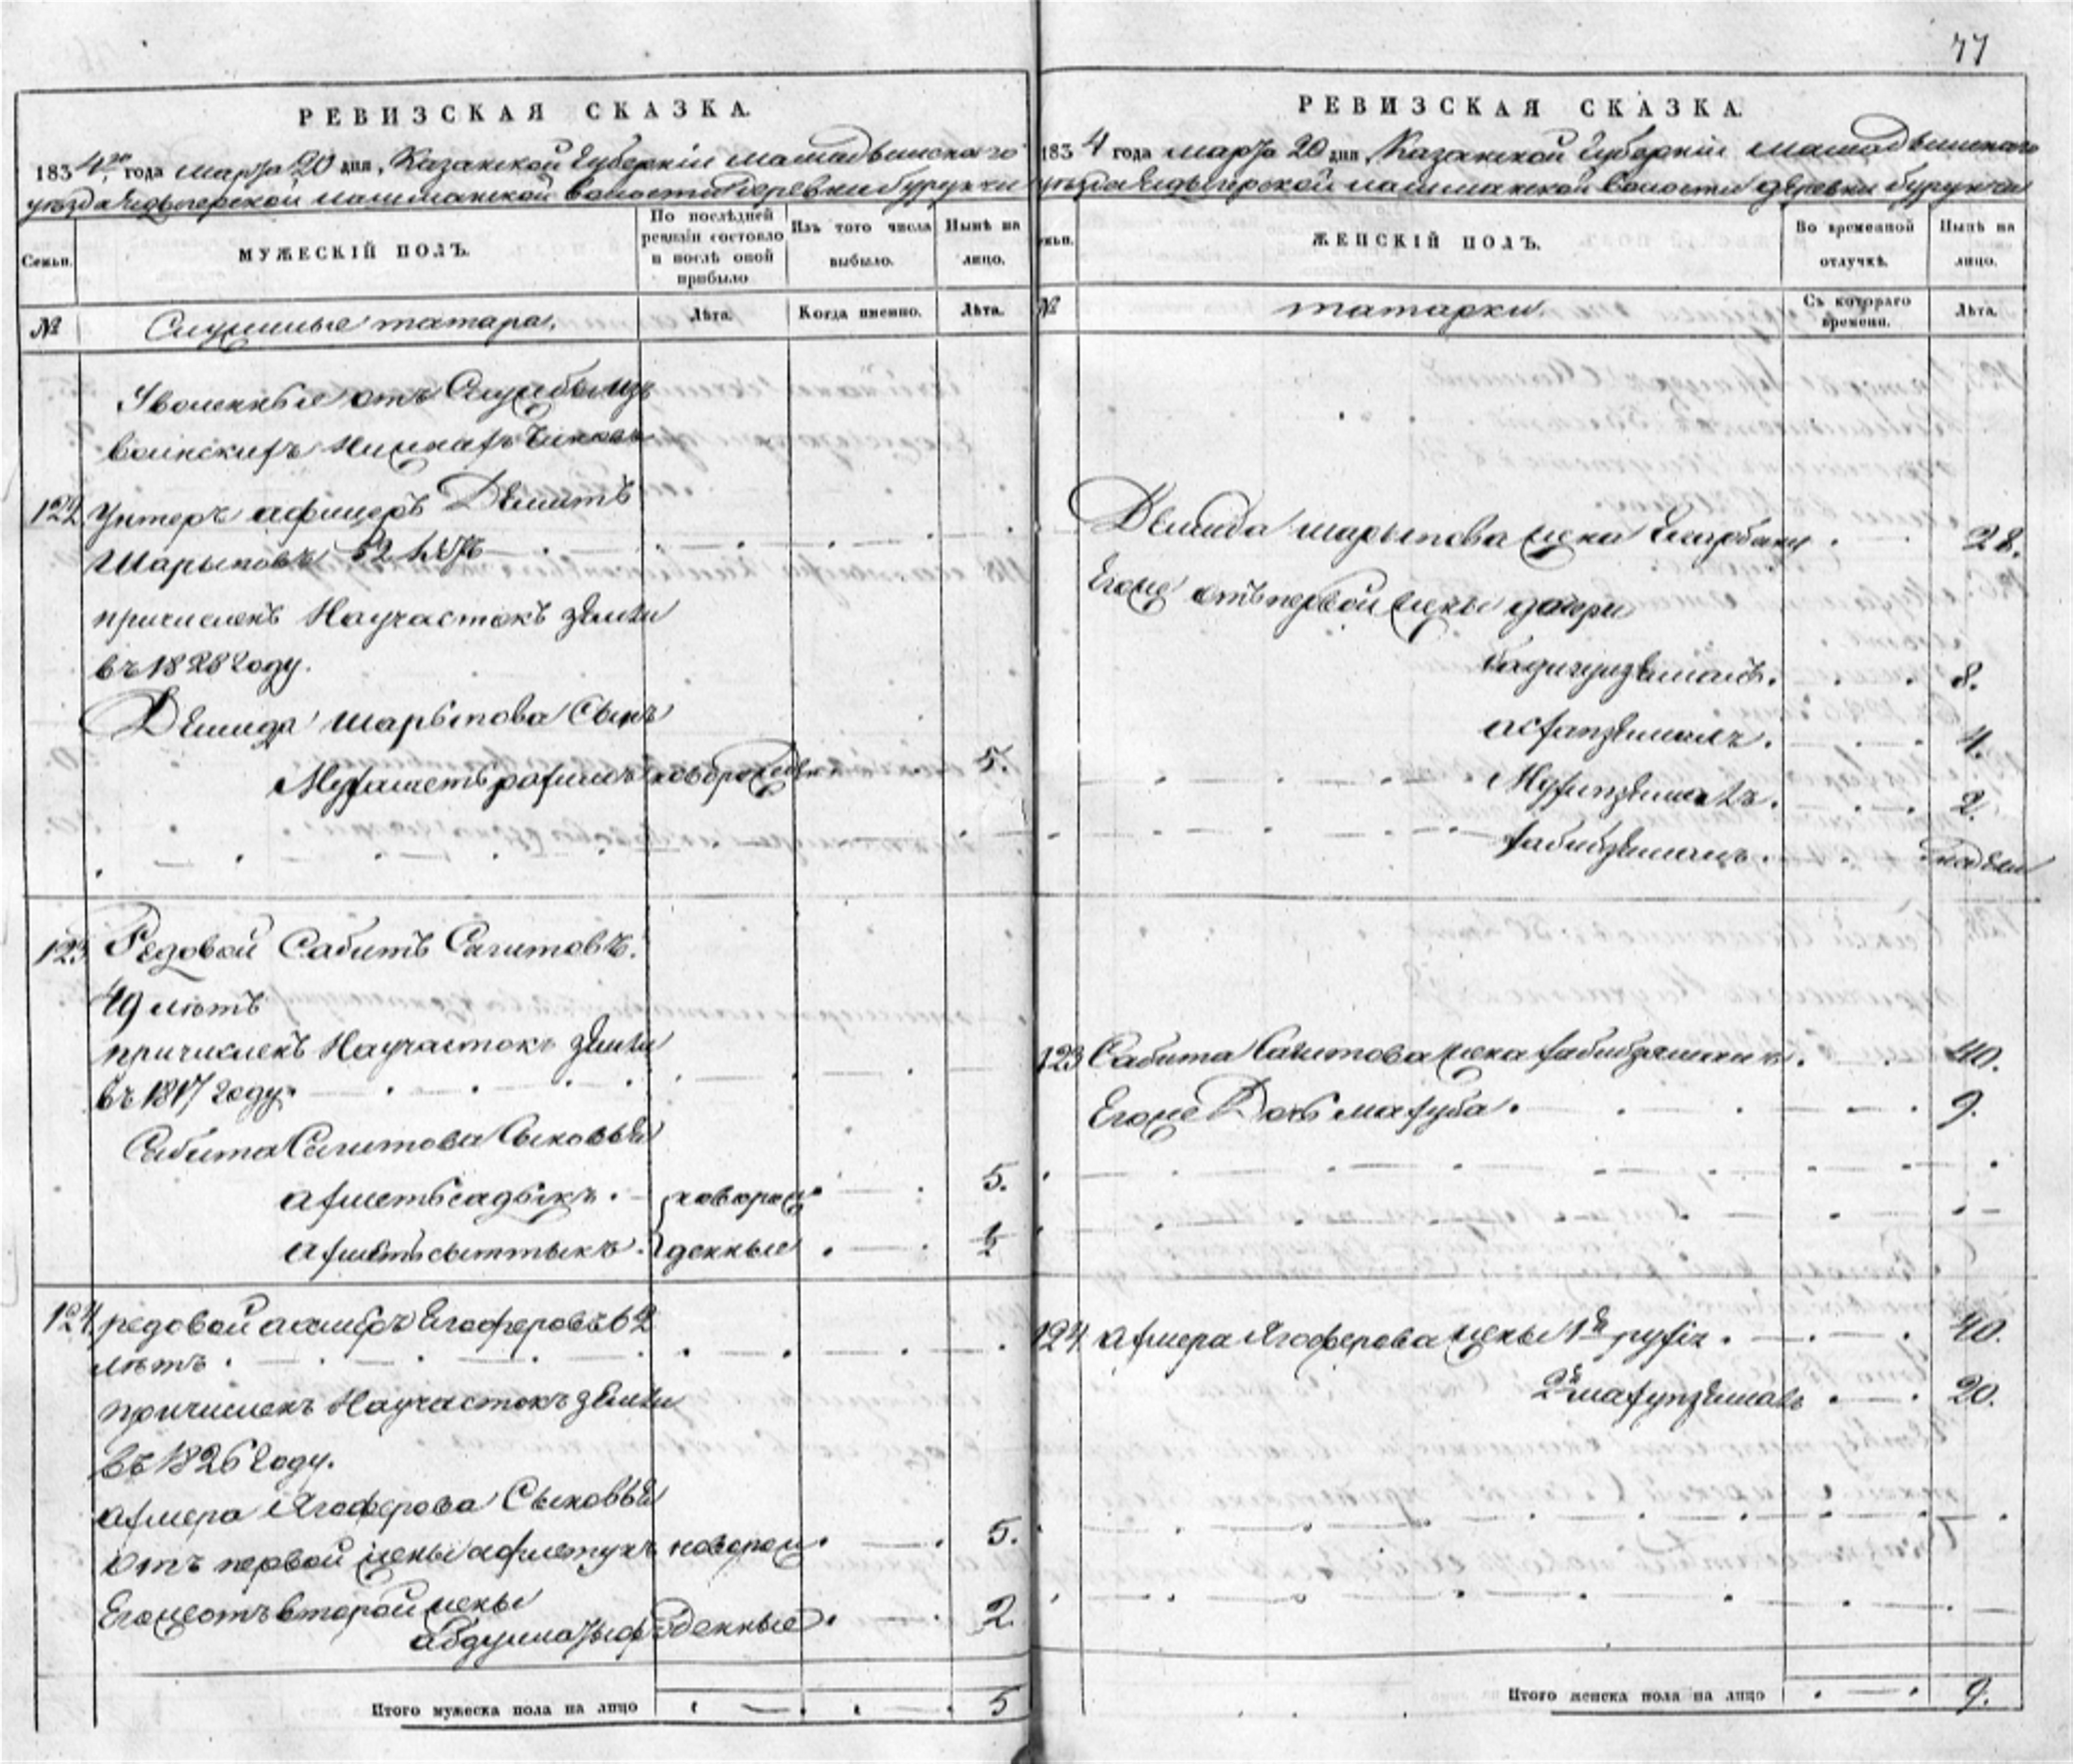 77
РЕВИЗСКАЯ СКАЗКА.
1834го года марта 20 дня, Казанской Губернiи мамадышскаго
уезда Ядыгерской волости деревни бурунчи
Семьи.
МУЖЕСКIЙ ПОЛЪ.
По послѣдней ревизiи состояло и послѣ оной прибыло
Изъ того числа выбыло.
Нынѣ на лицо.
№
Служилые татара.
Лѣта.
Когда именно.
Лѣта.
Уволенные отъ Службы изъ
воинскихъ Нижнихъ Чиновъ
122 Унтеръ афицеръ Демитъ
Шарыповъ 52 летъ
причисленъ На участокъ земли
въ 1828 году.
Демида шарыпова Сынъ
Мухаметьрахимъ новорожден. 5.
123 Редовой Сабитъ Сагитовъ.
49 летъ
причисленъ На участокъ земли
въ 1817 году.
Сабита Сагитова Сыновья
ахметьсадыкъ. новорож 5.
ахметьсыттыкъ. денные 1/2
124 редовой Ягоферовъ 62
летъ.
причисленъ На участокъ земли
въ 1826 году.
ахмера Ягоферова Сыновья
отъ первой жены новорож 5.
Егожеотъ второй жены
абдуллатыф денные 2
Итого мужеска пола на лицо 5
РЕВИЗСКАЯ СКАЗКА.
1834 года марта 20 дня Казанской Губернiи мамадышскаго
уезда Ядыгерской волости деревни бурунчи
Семьи.
ЖЕНСКIЙ ПОЛЪ.
Во временной отлучкѣ.
Нынѣ на лицо.
№
татарки.
Съ котораго времени.
Лѣта.
Демида шарыпова жена 28.
Егоже отъ первой жены дочери
8.
4.
2.
хабибземалъ.
123 Сабита Сагитова жена хабибзямалъ. 40.
Егоже Дочь махуба. 9.
124 ахмера Ягоферова жены 1я 40.
2я махупземалъ 20.
Итого женска пола на лицо 9.